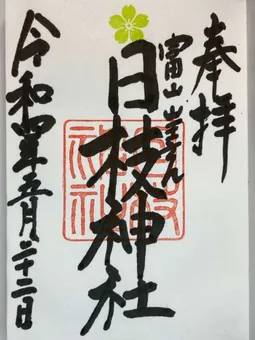 奉拝
富山山王さん
日枝神社
令和四年五月二十二日